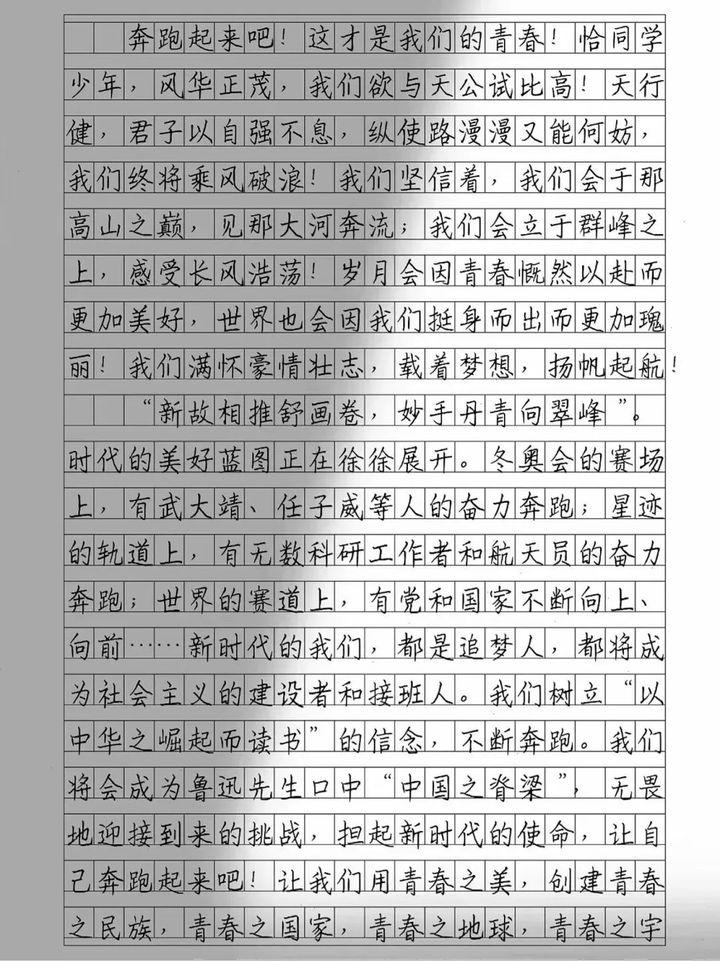 奔跑起来吧！这才是我们的青春！恰同学
少年，风华正茂，我们欲与天公试比高！天行
健，君子以自强不息，纵使路漫漫又能何妨，
我们终将乘风破浪！我们坚信着，我们会于那
高山之巅，见那大河奔流；我们会立于群峰之
上，感受长风浩荡！岁月会因青春慨然以赴而
更加美好，世界也会因我们挺身而出而更加瑰
丽！我们满怀豪情壮志，载着梦想，扬帆起航！
“新故相推舒画卷，妙手丹青向翠峰”。
时代的美好蓝图正在徐徐展开。冬奥会的赛场
上，有武大靖、任子威等人的奋力奔跑；星迹
的轨道上，有无数科研工作者和航天员的奋力
奔跑；世界的赛道上，有党和国家不断向上、
向前……新时代的我们，都是追梦人，都将成
为社会主义的建设者和接班人。我们树立“以
中华之崛起而读书”的信念，不断奔跑。我们
将会成为鲁迅先生口中“中国之脊梁”，无畏
地迎接到来的挑战，担起新时代的使命，让自
己奔跑起来吧！让我们用青春之美，创建青春
之民族，青春之国家，青春之地球，青春之宇